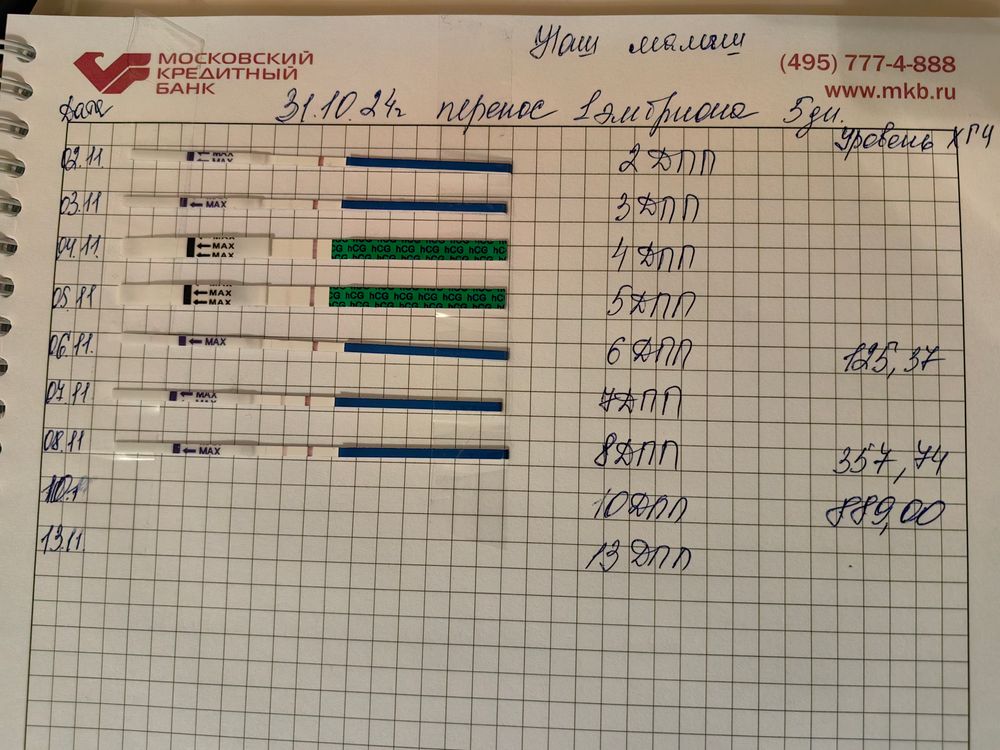 Наш малыш
МОСКОВСКИЙ
КРЕДИТНЫЙ
БАНК
(495) 777-4-888
www.mkb.ru
Дата 31.10.24г перенос 1 эмбриона 5дн. Уровень ХГЧ
02.11 MAX MAX 2ДПП
03.11 MAX 3ДПП
04.11 MAX MAX hCG hCG hCG hCG hCG hCG 4ДПП
05.11 MAX MAX hCG hCG hCG hCG hCG hCG 5ДПП
06.11. MAX 6ДПП 125,37
07.11 MAX MAX 7ДПП
08.11 MAX 8ДПП 357,74
10ДПП 889,00
13.11. 13ДПП